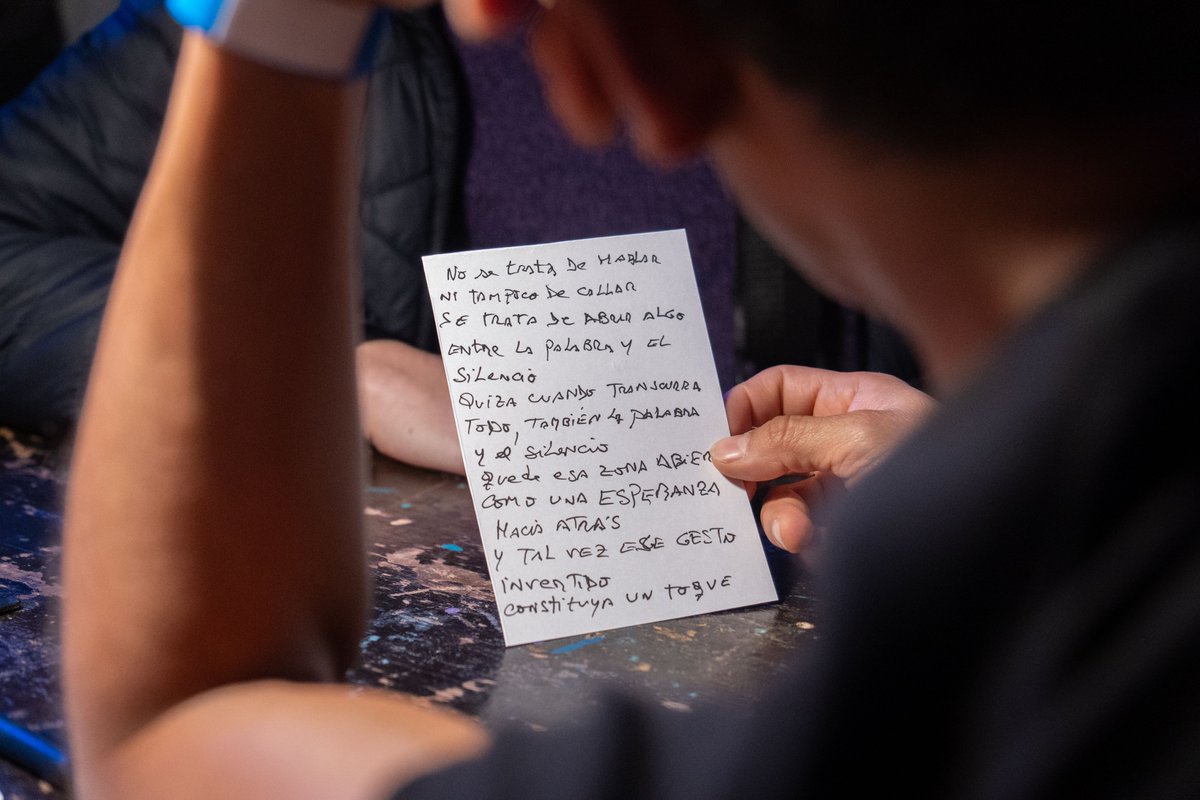 No se trata de HABLAR
Ni TAMPOCO DE CALLAR
SE TRATA DE ABRIR ALGO
ENTRE LA PALABRA Y EL
SiLENCiO
QUIZA CUANDO TRANSCURRA
TODO, TAMBIÉN LA PALABRA
y el SiLENCiO
Quede esa ZONA ABIER
COMO UNA ESPERANZA
HACIA ATRÁS
Y TAL VEZ ESE GESTO
iNVERTIDO
CONSTITUYA UN TOQUE